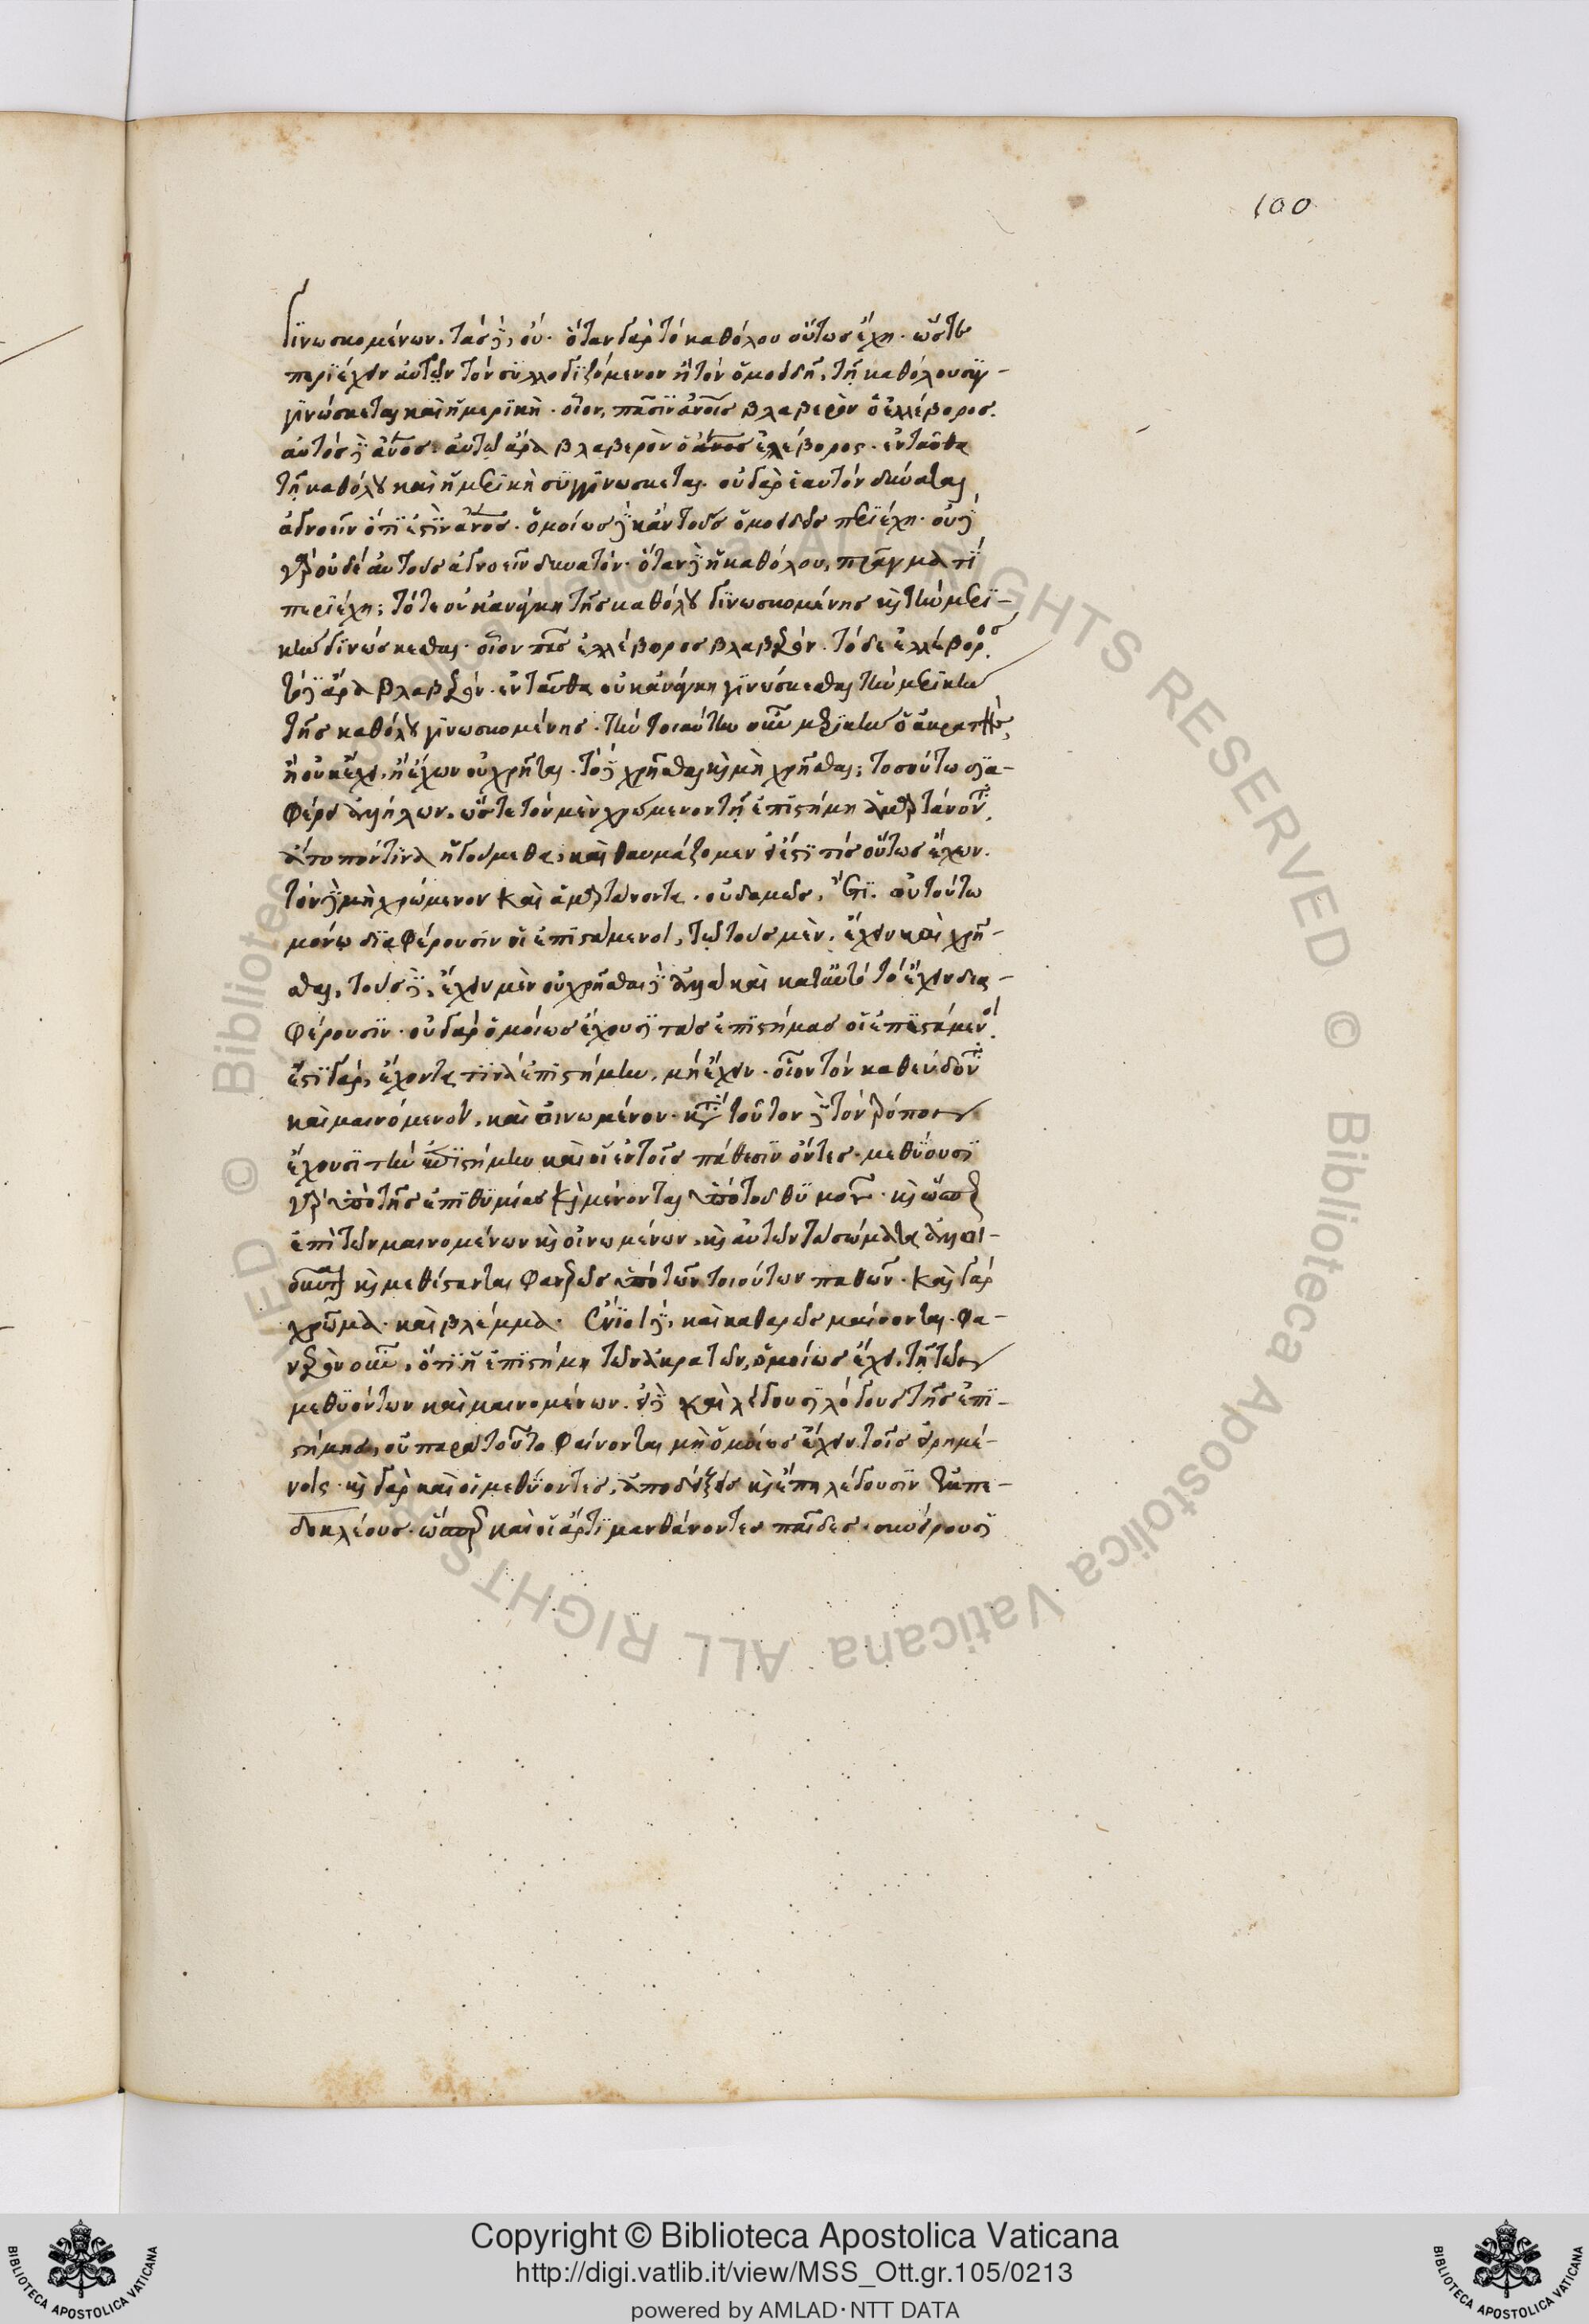 100
γϊνωσκομένων. τὰσ δὲ, οὔ. ὅταν γὰρ τὸ καθόλου οὕτωσ ἔχη. ὥστε
περϊέχειν αὐτὸν τὸν συλλογϊζόμενον ἢ τὸν ὁμοειδῆ, τῆ καθόλου συγ-
γϊνώσκεται καὶ ἡ μερϊκὴ. οἷον, πᾶσϊν ἀνοις βλαβερὸν ὁ ἐλλέβορος.
αὐτὸσ δὲ ἄνοσ. αὐτῶ ἄρα βλαβερὸν ὁ ἐλέβορος. ἐνταῦθα
τῆ καθόλου καὶ ἡ μερϊκὴ συγγϊνώσκεται. οὐ γὰρ ἑαυτὸν δύναται
ἀγνοεῖν ὅτϊ ἐστϊν ἄνοσ. ὁμοίωσ δὲ κἂν τοὺσ ὁμοειδεῖσ περϊέχη.
γὰρ οὐδὲ αὐτοὺσ ἀγνοεῖν δυνατὸν. ὅταν δὲ ἡ καθόλου, πρᾶγμά τϊ
περϊέχη; τότε οὐκ ἀνάγκη τῆσ καθόλου γϊνωσκομένησ καὶ τὴν μερϊ-
κὴν γϊνώσκεσθαι. οἷον πᾶσ ἐλλέβοροσ βλαβερόν. τόδε ἐλλέβοροσ.
τόδε ἄρα βλαβερόν. ἐνταῦθα οὐκ ἀνάγκη γϊνώσκεσθαι τὴν μερϊκὴν
τῆσ καθόλου γϊνωσκομένησ. τὴν τοιαύτην οὖν μερϊκὴν ὁ ἀκρατὴσ,
ἢ οὐκ ἔχει, ἢ ἔχων οὐ χρῆται. τὸ δὲ χρῆσθαι καὶ μὴ χρῆσθαι; τοσούτω δϊα-
φέρει ἀλλήλων. ὥστε τὸν μὲν χρώμενον τῆ ἐπϊστήμη ἁμαρτάνοντα,
ἄτοπόν τϊνα ἡγούμεθα, καὶ θαυμάζομεν εἰ ἔστϊ τϊσ οὕτωσ ἔχων.
τὸν δὲ μὴ χρώμενον καὶ ἁμαρτάνοντα. οὐδαμῶσ. ἔτϊ. οὐ τούτω
μόνω δϊαφέρουσϊν οἱ ἐπϊστάμενοι, τῶ τοὺσ μὲν, ἔχειν καὶ χρῆ-
σθαι, τοὺσ δὲ, ἔχειν μὲν οὐ χρῆσθαι δὲ ἀλλὰ καὶ κατ᾽ αὐτὸ τὸ ἔχειν δϊα-
φέρουσϊν. οὐ γὰρ ὁμοίωσ ἔχουσϊ τὰσ ἐπϊστήμασ οἱ ἐπϊστάμενοι.
ἔστϊ γὰρ, ἔχοντα τϊνὰ ἐπϊστήμην, μὴ ἔχειν. οἷον τὸν καθεύδοντα
καὶ μαινόμενον, καὶ οἰνωμένον. κατὰ τοῦτον δὲ τὸν τρόπον
ἔχουσϊ τὴν ἐπϊστήμην καὶ οἱ ἐν τοῖσ πάθεσϊν ὄντεσ. μεθύουσϊ
γὰρ ὑπὸ τῆσ ἐπϊθυμίασ καὶ μαίνονται ὑπὸ τοῦ θυμοῦ. καὶ ὥσπερ
ἐπὶ τῶν μαινομένων καὶ οἰνωμένων, καὶ αὐτῶν τὰ σώματα ἀλλοι-
οῦνται καὶ μεθίστανται φανερῶσ ὑπὸ τῶν τοιούτων παθῶν. καὶ γὰρ
χρῶμα. καὶ βλέμμα. ἔνϊοι δὲ, καὶ καθαρῶσ μαίνονται. φα-
νερὸν οὖν, ὅτϊ ἡ ἐπϊστήμη τῶν ἀκρατῶν, ὁμοίωσ ἔχει τῆ τῶν
μεθυόντων καὶ μαινομένων. εἰ δὲ καὶ λέγουσϊ λόγουσ τῆσ ἐπϊ-
στήμησ, οὐ παρὰ τοῦτο φαίνονται μὴ ὁμοίωσ ἔχειν τοῖσ εἰρημέ-
νοις. καὶ γὰρ καὶ οἱ μεθύοντεσ, ἀποδείξεισ καὶ ἔπη λέγουσϊν ἐμπε-
δοκλέουσ. ὥσπερ καὶ οἱ ἄρτϊ μανθάνοντεσ παῖδεσ. συνείρουσϊ
© Biblioteca Apostolica Vaticana ALL RIGHTS RESERVED
Copyright © Biblioteca Apostolica Vaticana
http://digi.vatlib.it/view/MSS_Ott.gr.105/0213
powered by AMLAD·NTT DATA
BIBLIOTECA APOSTOLICA VATICANA
BIBLIOTECA APOSTOLICA VATICANA